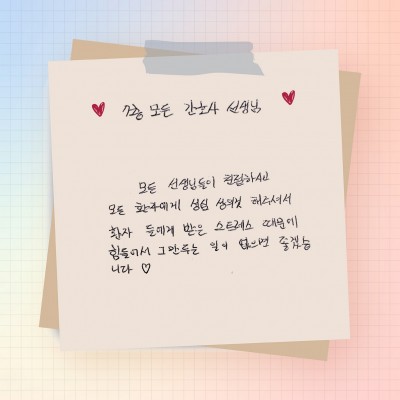 7층 모든 간호사 선생님
모든 선생님들이 친절하시고
모든 환자에게 성심 성의껏 해주셔서
환자 들에게 받은 스트레스 때문에
힘들어서 그만두는 일이 없으면 좋겠습
니다 ♡